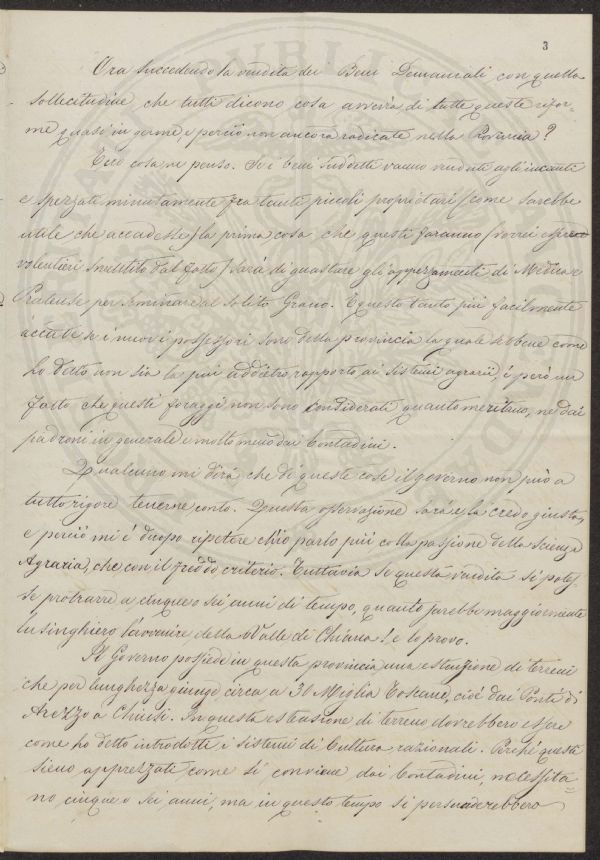 3
Ora succedendo la vendita dei Beni Demaniali con quella
sollecitudine che tutti dicono cosa avverrà di tutte queste rifor-
me quasi in germe, e perciò non ancora radicate nella Provincia?
Ecco cosa ne penso. Se i beni suddetti vanno venduti agli incanti
e spezzati minutamente fra tanti piccoli proprietari (come sarebbe
utile che accadesse) la prima cosa che questi faranno (vorrei essere
volentieri smentito dal fatto) sarà di guastare gli appezzamenti di Medica e
Pratense per seminare al solito Grano. E questo tanto più facilmente
accade se i nuovi possessori sono della provincia la quale sebbene come
ho detto non sia la più addietro rapporto ai sistemi agrarii, è però un
fatto che questi foraggi non sono considerati quanto meritano, ne dai
padroni in generale e molto meno dai Contadini.
Qualcuno mi dirà che di queste cose il governo non può a
tutto rigore tenerne conto. Questa osservazione sarà e la credo giusta,
e perciò mi è duopo ripetere ch'io parlo più colla passione della scienza
Agraria, che con il freddo criterio. Tuttavia se questa vendita si potes-
se protrarre a cinque o sei anni di tempo, quanto sarebbe maggiormente
lusinghiero l'avvenire della Valle di Chiana! e lo provo.
Il Governo possiede in questa provincia una estenzione di terreni
che per lunghezza giunge circa a 30 Miglia Toscane, cioè dai Ponti di
Arezzo a Chiusi. In questa estensione di terreno dovrebbero essere
come ho detto introdotti i sistemi di Cultura razionale. Perché questi
sieno apprezzati come si conviene dai Contadini, necessita=
no cinque o sei anni, ma in questo tempo si persuaderebbero